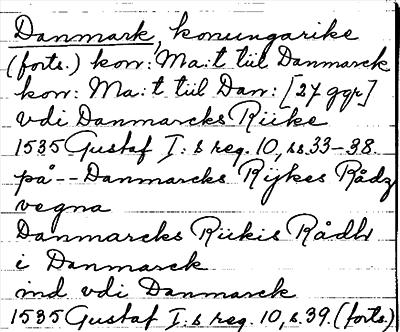 Danmark, konungarike
(forts.) kon: Ma:t tiil Danmarck
kon: Ma:t tiil Dan: [27 ggr]
vdi Danmarcks Riike
1535 Gustaf I:s reg. 10, ss. 33-38.
på -- Danmarcks Rijkes Rådz
vegna
Danmarcks Riikis Rådh
i Danmarck
ind vdi Danmarck
1535 Gustaf I:s reg. 10, s. 39. (forts.)